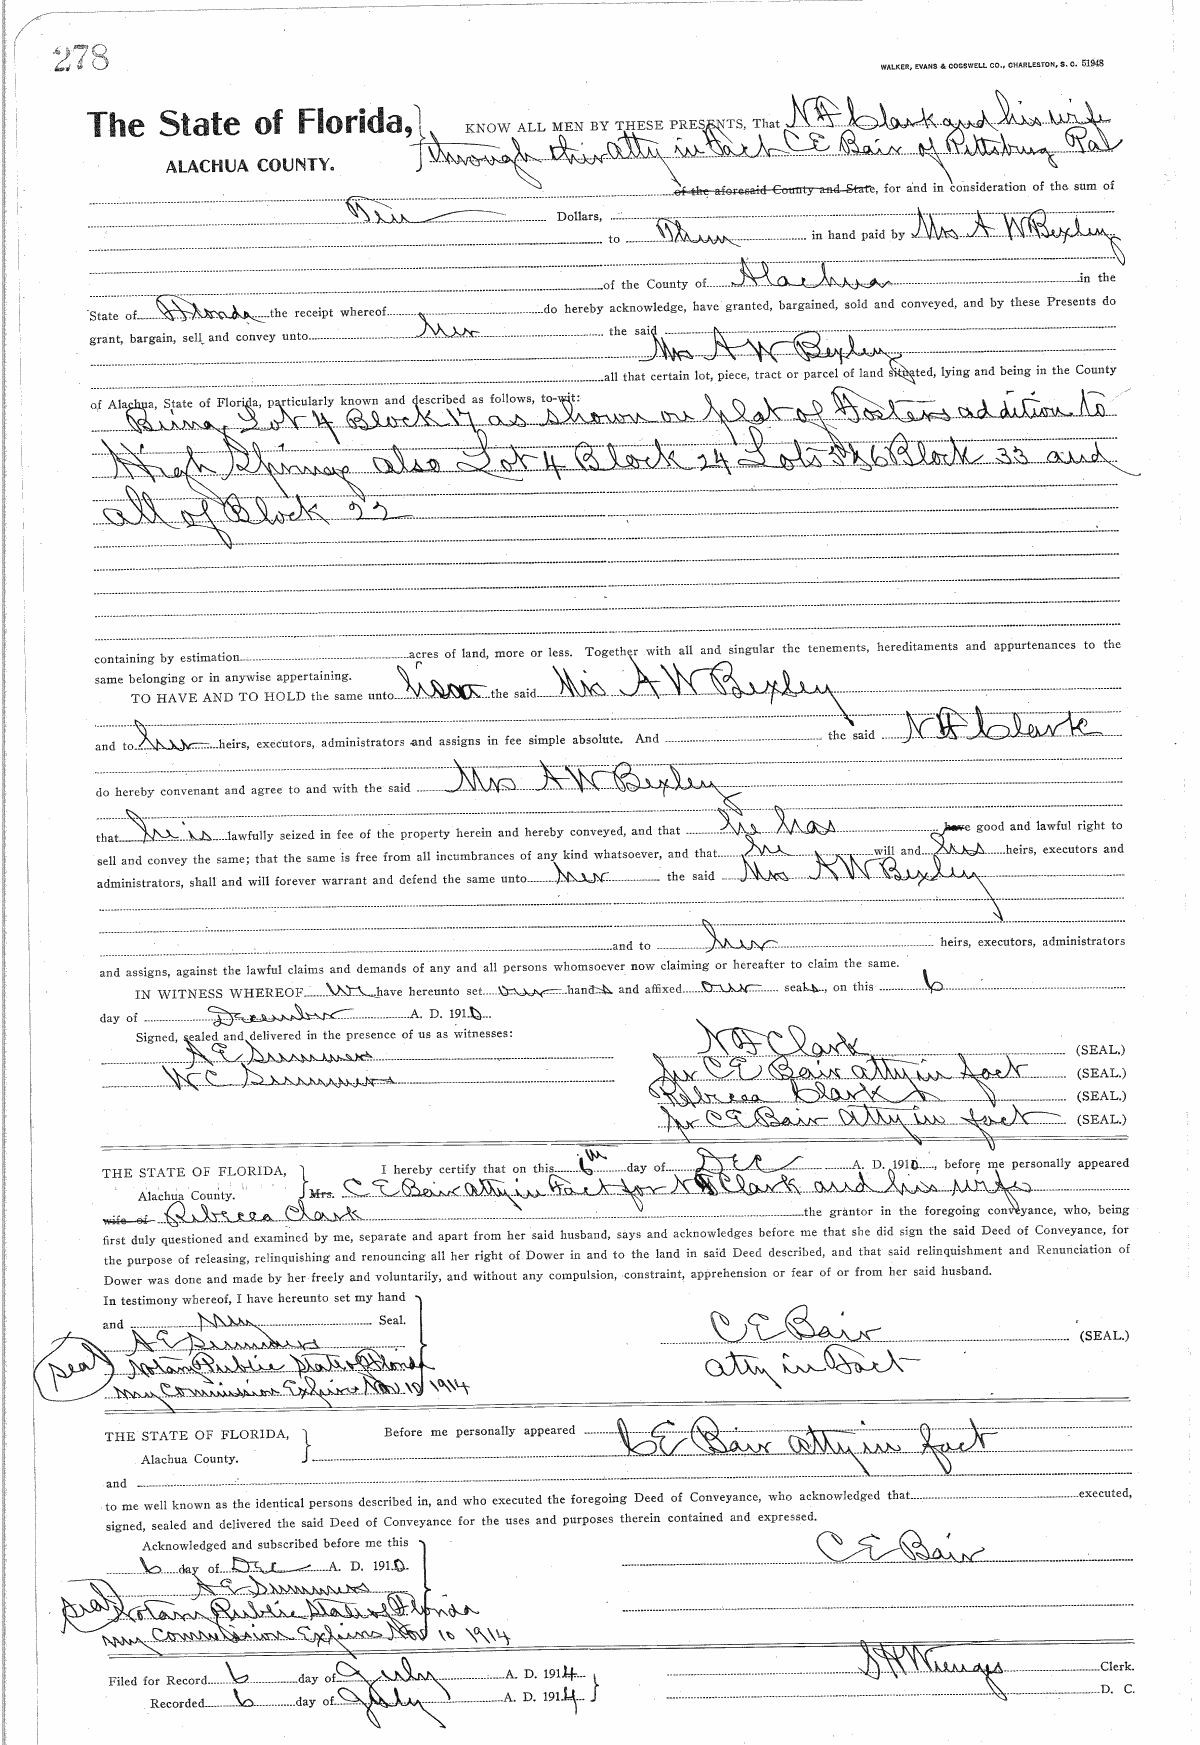 278
WALKER, EVANS & COGSWELL CO., CHARLESTON, S. C. 51948
The State of Florida,
ALACHUA COUNTY.
KNOW ALL MEN BY THESE PRESENTS, That N H Clark and his wife
through thir atty in Fact C E Bair of Pittsburg Pa
of the aforesaid County and State, for and in consideration of the sum of
Ten Dollars,
to Them in hand paid by Mrs A W Bexley
of the County of Alachua in the
State of Florida the receipt whereof do hereby acknowledge, have granted, bargained, sold and conveyed, and by these Presents do
grant, bargain, sell and convey unto her the said
Mrs A W Bexley
all that certain lot, piece, tract or parcel of land situated, lying and being in the County
of Alachua, State of Florida, particularly known and described as follows, to-wit:
Being Lot 4 Block 17 as shown on plat of Fosters addition to
High Springs also Lot 4 Block 24 Lots 5 & 6 Block 33 and
all of Block 22
containing by estimation acres of land, more or less. Together with all and singular the tenements, hereditaments and appurtenances to the
same belonging or in anywise appertaining.
TO HAVE AND TO HOLD the same unto the said Mrs A W Bexley
and to her heirs, executors, administrators and assigns in fee simple absolute. And the said N H Clark
do hereby convenant and agree to and with the said Mrs A W Bexley
that he is lawfully seized in fee of the property herein and hereby conveyed, and that he has have good and lawful right to
sell and convey the same; that the same is free from all incumbrances of any kind whatsoever, and that he will and his heirs, executors and
administrators, shall and will forever warrant and defend the same unto her the said Mrs A W Bexley
and to her heirs, executors, administrators
and assigns, against the lawful claims and demands of any and all persons whomsoever now claiming or hereafter to claim the same.
IN WITNESS WHEREOF We have hereunto set our hands and affixed our seals, on this 6
day of December A. D. 1910.
Signed, sealed and delivered in the presence of us as witnesses:
A E Summers
W C Summers
N H Clark (SEAL.)
per C E Bair atty in fact (SEAL.)
Rebecca Clark (SEAL.)
per C E Bair Atty in fact (SEAL.)
THE STATE OF FLORIDA,
Alachua County.
I hereby certify that on this 6th day of Dec A. D. 1910, before me personally appeared
Mrs. C E Bair atty in Fact for N H Clark and his wife
wife of Rebecca Clark the grantor in the foregoing conveyance, who, being
first duly questioned and examined by me, separate and apart from her said husband, says and acknowledges before me that she did sign the said Deed of Conveyance, for
the purpose of releasing, relinquishing and renouncing all her right of Dower in and to the land in said Deed described, and that said relinquishment and Renunciation of
Dower was done and made by her freely and voluntarily, and without any compulsion, constraint, apprehension or fear of or from her said husband.
In testimony whereof, I have hereunto set my hand
and my Seal.
A E Summers
Seal Notary Public State of Florida
my Commission Expires Nov 10 1914
C E Bair (SEAL.)
atty in Fact
THE STATE OF FLORIDA,
Alachua County.
Before me personally appeared C E Bair atty in fact
and
to me well known as the identical persons described in, and who executed the foregoing Deed of Conveyance, who acknowledged that executed,
signed, sealed and delivered the said Deed of Conveyance for the uses and purposes therein contained and expressed.
Acknowledged and subscribed before me this
6 day of Dec A. D. 1910.
C E Bair
A E Summers
Seal Notary Public State of Florida
my Commission Expires Nov 10 1914
Filed for Record 6 day of July A. D. 1914
Recorded 6 day of July A. D. 1914
S H Wienges Clerk.
D. C.